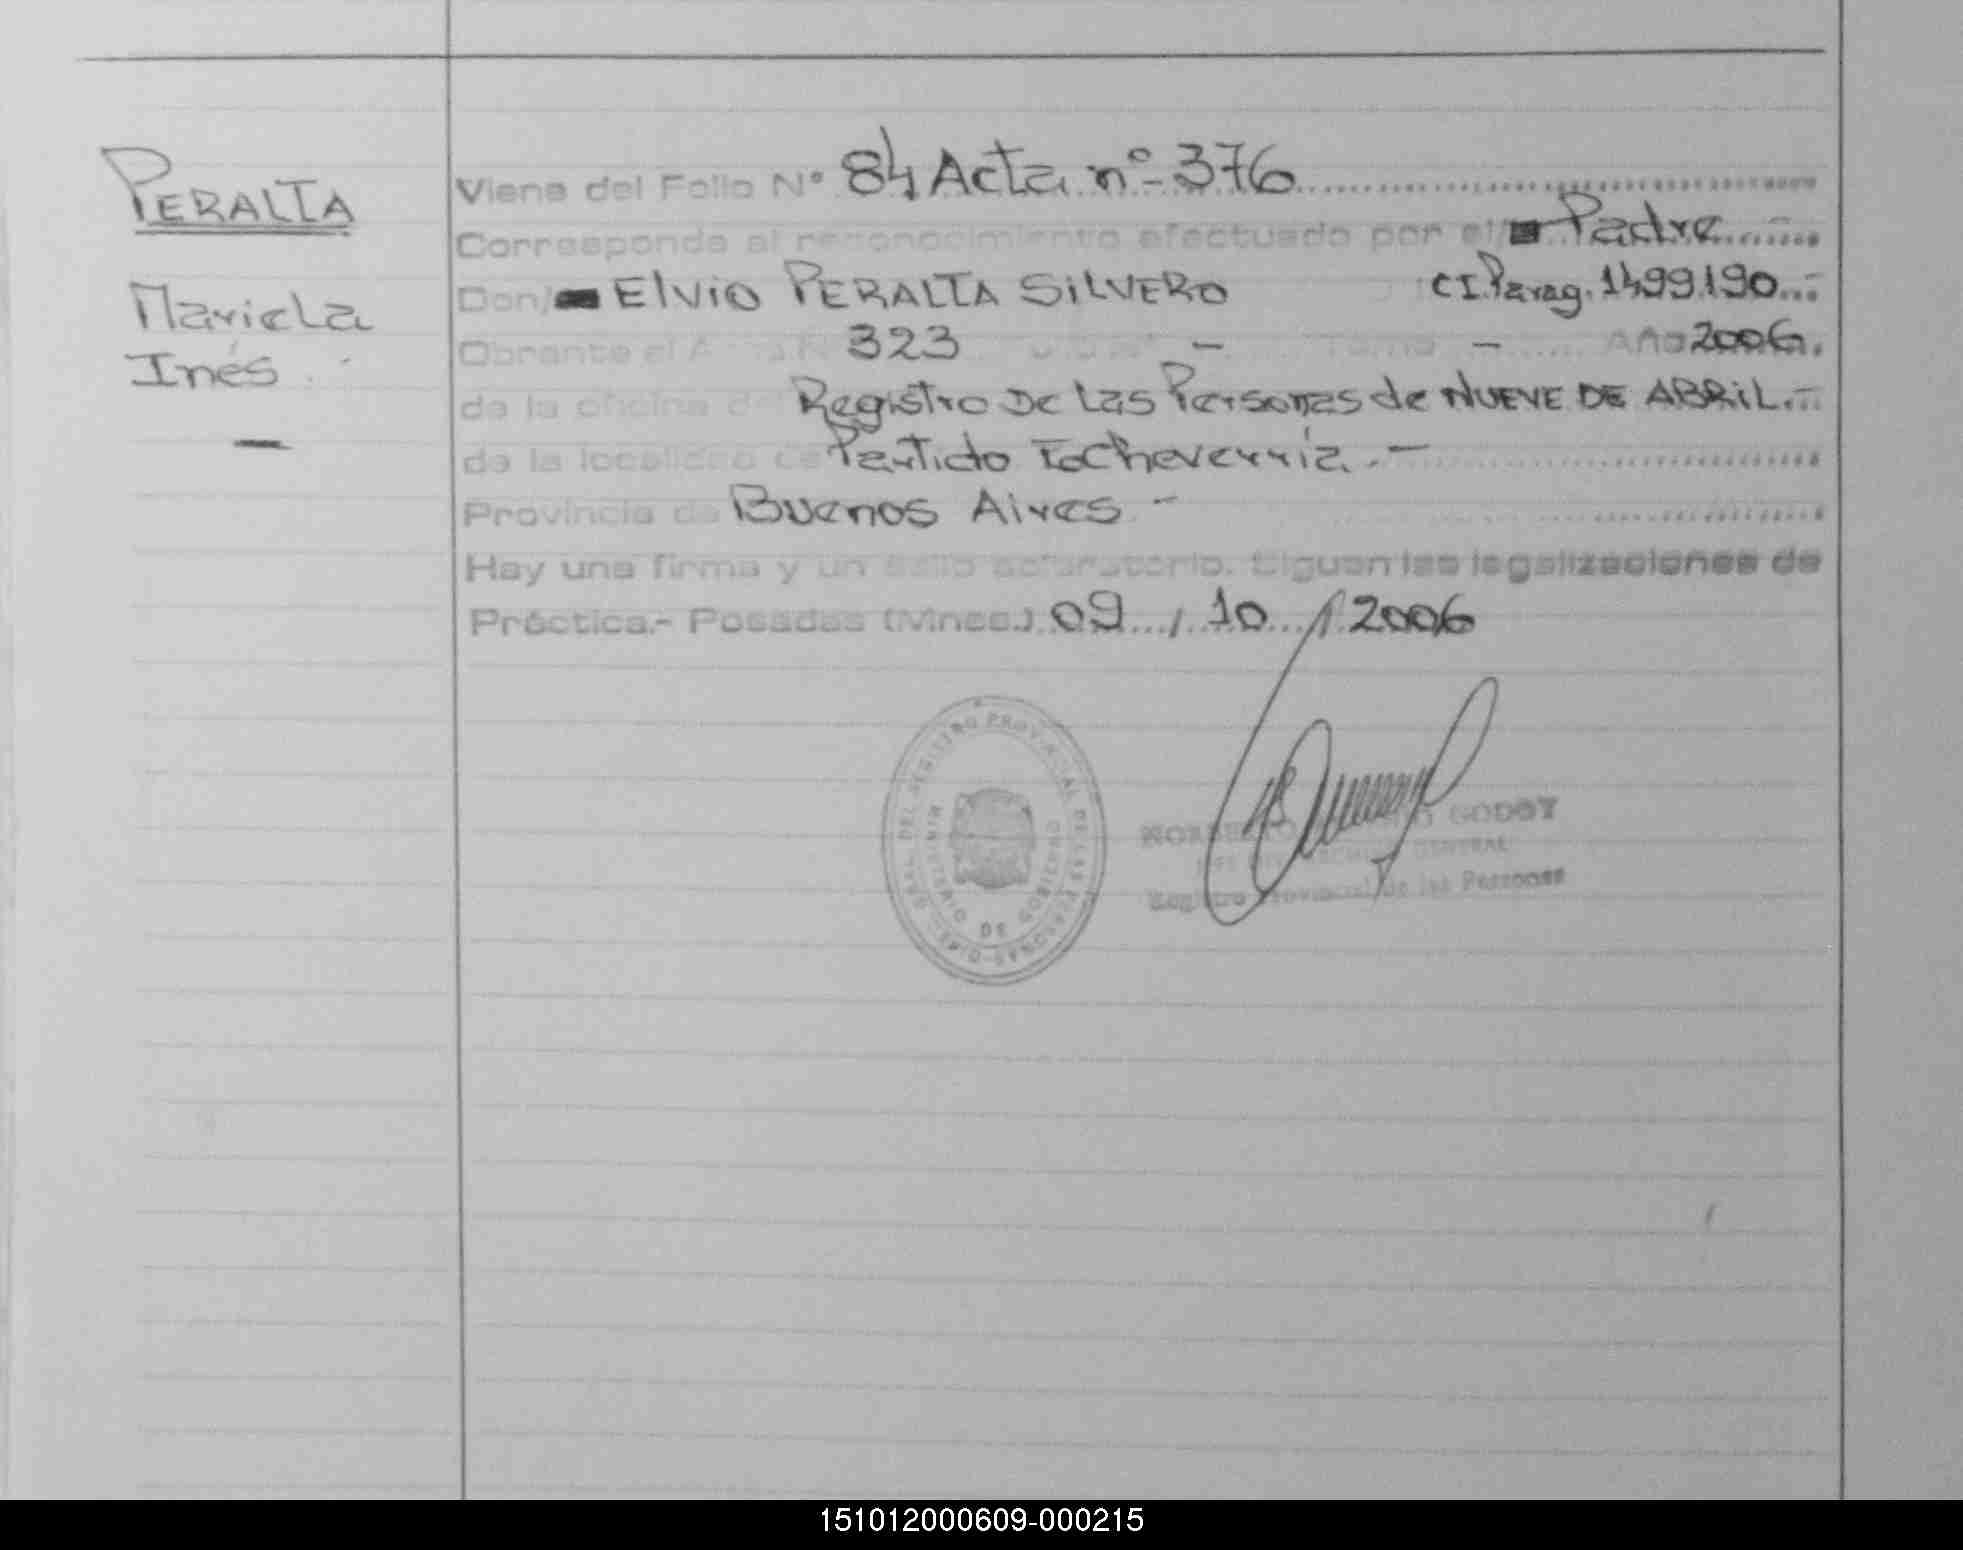 PERALTA
Mariela
Inés
Viene del Folio N° 84 Acta nº 376
Corresponde al reconocimiento efectuado por el/ Padre
Don/ Elvio PERALTA SILVERO CI.Parag. 1499190
Obrante al Acta N° 323 - Tomo - Año 2006.
de la oficina del Registro De Las Personas de NUEVE DE ABRIL.-
de la localidad de Partido Echeverria.-
Provincia de Buenos Aires -
Hay una firma y un sello aclaratorio. Siguen las legalizaciones de
Práctica.- Posadas (Mnes.) 09 / 10 / 2006
DEL REGISTRO PROVINCIAL DE LAS PERSONAS
MINISTERIO DE GOBIERNO
GODOY
ARCHIVO CENTRAL
Registro Provincial de las Personas
151012000609-000215